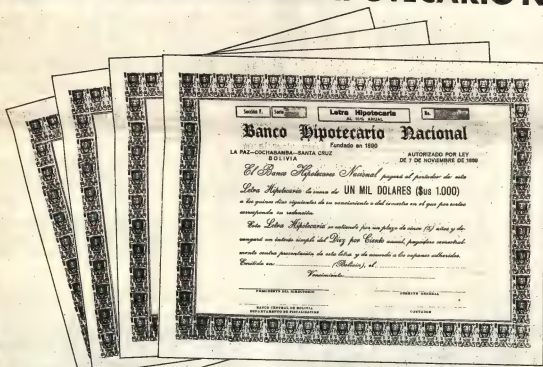 POTECARIO N
Sección F. Serie Letra Hipotecaria No.
AL 10% ANUAL
Banco Hipotecario Nacional
Fundado en 1890
LA PAZ—COCHABAMBA—SANTA CRUZ
BOLIVIA
AUTORIZADO POR LEY
DE 7 DE NOVIEMBRE DE 1889
El Banco Hipotecario Nacional pagará al portador de esta
Letra Hipotecaria la suma de UN MIL DOLARES ($us 1.000)
a los quince días siguientes de su vencimiento o del semestre en el que por sorteo
corresponda su redención.
Esta Letra Hipotecaria se extiende por un plazo de cinco (5) años y de-
vengará un interés simple del Diez por Ciento anual, pagadero semestral-
mente contra presentación de esta letra y de acuerdo a los cupones adheridos.
Emitida en (Bolivia), el
Vencimiento
PRESIDENTE DEL DIRECTORIO GERENTE GENERAL
BANCO CENTRAL DE BOLIVIA
DEPARTAMENTO DE FISCALIZACION CONTADOR